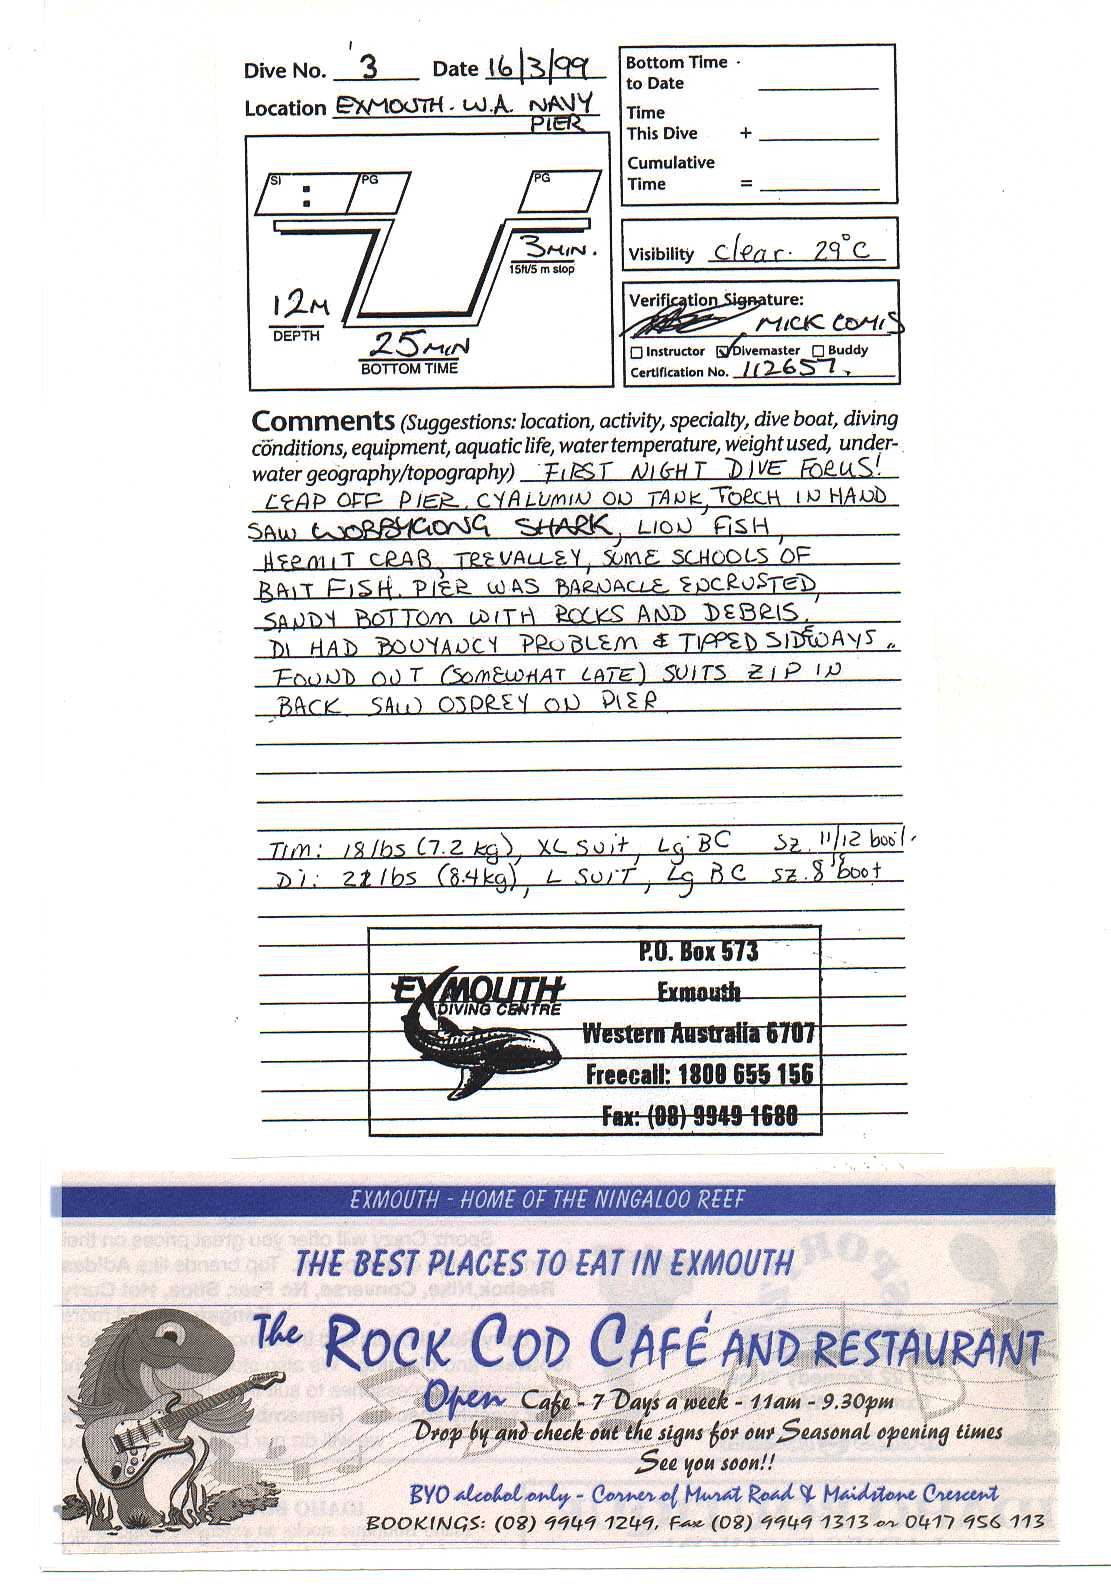 Dive No. 3 Date 16/3/99
Location EXMOUTH. W.A. NAVY
PIER
SI : PG
PG
3 MIN.
15ft/5 m stop
12M
DEPTH
25 MIN
BOTTOM TIME
Bottom Time
to Date
Time
This Dive +
Cumulative
Time =
Visibility clear. 29°C
Verification Signature:
MICK COMIS
Instructor Divemaster Buddy
Certification No. 112657.
Comments (Suggestions: location, activity, specialty, dive boat, diving
conditions, equipment, aquatic life, water temperature, weight used, under-
water geography/topography) FIRST NIGHT DIVE FOR US!
LEAP OFF PIER. CYALUMIN ON TANK, TORCH IN HAND
SAW WOBBYGONG SHARK, LION FISH,
HERMIT CRAB, TREVALLEY, SOME SCHOOLS OF
BAIT FISH. PIER WAS BARNACLE ENCRUSTED,
SANDY BOTTOM WITH ROCKS AND DEBRIS.
DI HAD BOUYANCY PROBLEM & TIPPED SIDEWAYS..
FOUND OUT (SOMEWHAT LATE) SUITS ZIP IN
BACK. SAW OSPREY ON PIER
TIM: 18 lbs (7.2 kg), XL SUIT, Lg BC sz. 11/12 boot.
Di: 21 lbs (8.4kg), L SUIT, Lg BC sz. 8 boot
EXMOUTH
DIVING CENTRE
P.O. Box 573
Exmouth
Western Australia 6707
Freecall: 1800 655 156
Fax: (08) 9949 1680
EXMOUTH - HOME OF THE NINGALOO REEF
THE BEST PLACES TO EAT IN EXMOUTH
The ROCK COD CAFÉ AND RESTAURANT
Open Cafe - 7 Days a week - 11am - 9.30pm
Drop by and check out the signs for our Seasonal opening times
See you soon!!
BYO alcohol only - Corner of Murat Road & Maidstone Crescent
BOOKINGS: (08) 9949 1249, Fax (08) 9949 1313 or 0417 956 113